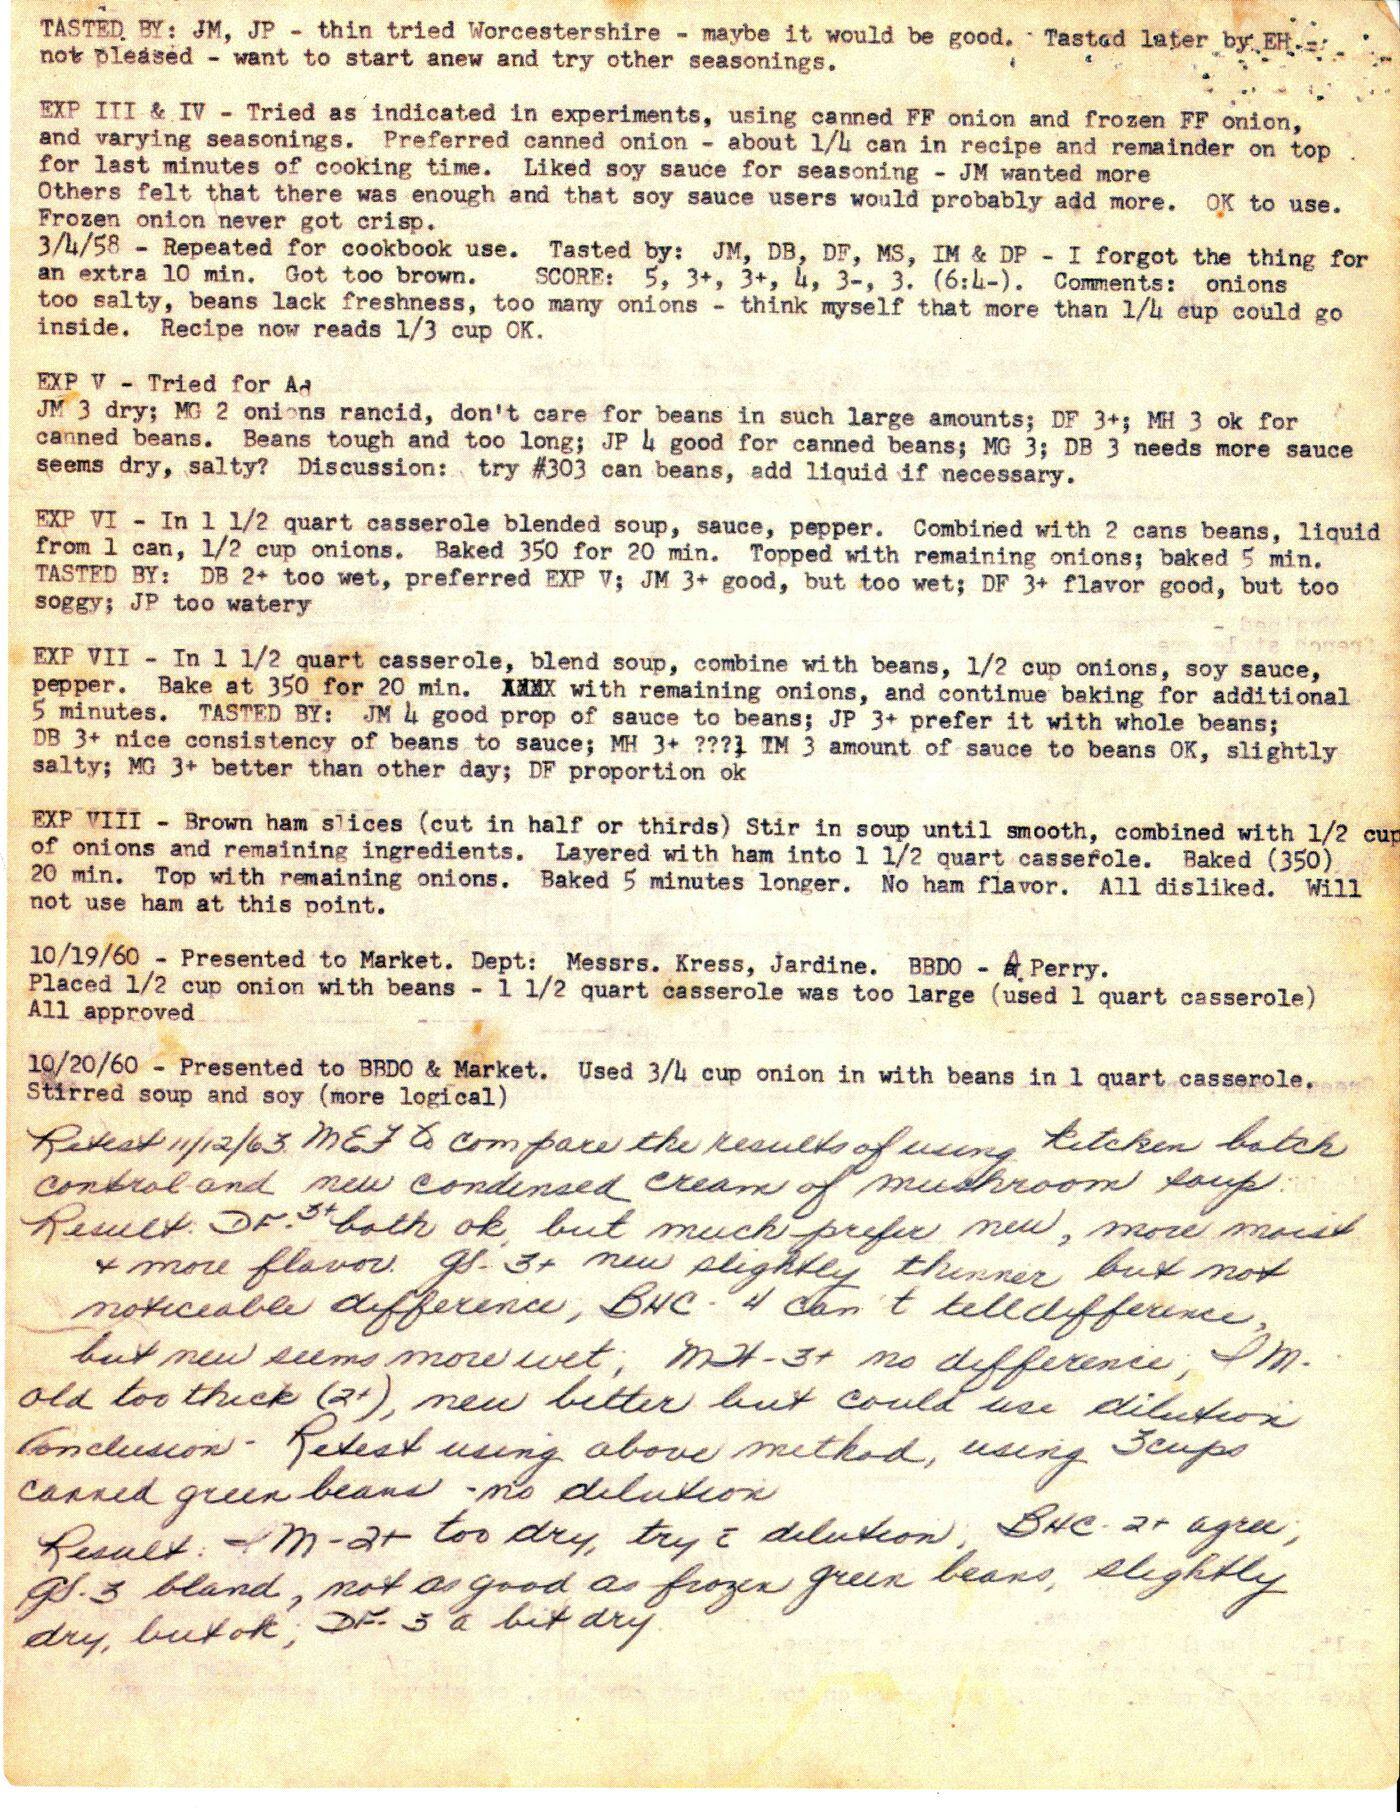 TASTED BY: JM, JP - thin tried Worcestershire - maybe it would be good. Tasted later by EH -
not pleased - want to start anew and try other seasonings.
EXP III & IV - Tried as indicated in experiments, using canned FF onion and frozen FF onion,
and varying seasonings. Preferred canned onion - about 1/4 can in recipe and remainder on top
for last minutes of cooking time. Liked soy sauce for seasoning - JM wanted more
Others felt that there was enough and that soy sauce users would probably add more. OK to use.
Frozen onion never got crisp.
3/4/58 - Repeated for cookbook use. Tasted by: JM, DB, DF, MS, IM & DP - I forgot the thing for
an extra 10 min. Got too brown. SCORE: 5, 3+, 3+, 4, 3-, 3. (6:4-). Comments: onions
too salty, beans lack freshness, too many onions - think myself that more than 1/4 cup could go
inside. Recipe now reads 1/3 cup OK.
EXP V - Tried for Ad
JM 3 dry; MG 2 onions rancid, don't care for beans in such large amounts; DF 3+; MH 3 ok for
canned beans. Beans tough and too long; JP 4 good for canned beans; MG 3; DB 3 needs more sauce
seems dry, salty? Discussion: try #303 can beans, add liquid if necessary.
EXP VI - In 1 1/2 quart casserole blended soup, sauce, pepper. Combined with 2 cans beans, liquid
from 1 can, 1/2 cup onions. Baked 350 for 20 min. Topped with remaining onions; baked 5 min.
TASTED BY: DB 2+ too wet, preferred EXP V; JM 3+ good, but too wet; DF 3+ flavor good, but too
soggy; JP too watery
EXP VII - In 1 1/2 quart casserole, blend soup, combine with beans, 1/2 cup onions, soy sauce,
pepper. Bake at 350 for 20 min. XXXX with remaining onions, and continue baking for additional
5 minutes. TASTED BY: JM 4 good prop of sauce to beans; JP 3+ prefer it with whole beans;
DB 3+ nice consistency of beans to sauce; MH 3+ ???; IM 3 amount of sauce to beans OK, slightly
salty; MG 3+ better than other day; DF proportion ok
EXP VIII - Brown ham slices (cut in half or thirds) Stir in soup until smooth, combined with 1/2 cup
of onions and remaining ingredients. Layered with ham into 1 1/2 quart casserole. Baked (350)
20 min. Top with remaining onions. Baked 5 minutes longer. No ham flavor. All disliked. Will
not use ham at this point.
10/19/60 - Presented to Market. Dept: Messrs. Kress, Jardine. BBDO - A Perry.
Placed 1/2 cup onion with beans - 1 1/2 quart casserole was too large (used 1 quart casserole)
All approved
10/20/60 - Presented to BBDO & Market. Used 3/4 cup onion in with beans in 1 quart casserole.
Stirred soup and soy (more logical)
Retest 11/12/63 MEF to compare the results of using kitchen batch
control and new condensed cream of mushroom soup.
Result: DF-3+ both ok, but much prefer new, more moist
+ more flavor. GS-3+ new slightly thinner but not
noticeable difference, BHC-4 can't tell difference,
but new seems more wet; MH-3+ no difference, IM-
old too thick (2+), new better but could use dilution
Conclusion - Retest using above method, using 3 cups
canned green beans - no dilution
Result: IM-2+ too dry, try c̄ dilution, BHC-2+ agree,
GS-3 bland, not as good as frozen green beans, slightly
dry, but ok; DF-3 a bit dry